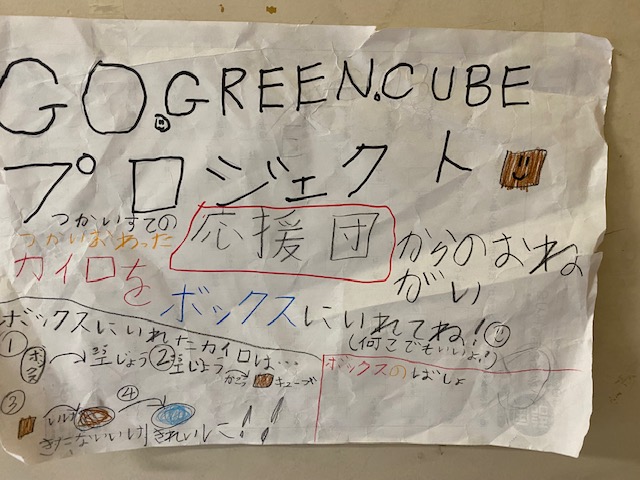 GO.GREEN.CUBE
プロジェクト
応援団
からのおね
がい
つかいすての
つかいおわった
カイロを
ボックスにいれてね!
(何こでもいいよ!)
ボックスにいれたカイロは…
① ボックス → 工じょう ② 工じょう → かこう キューブ
③ いけ ④
きたないいけ きれいに!!
ボックスのばしょ